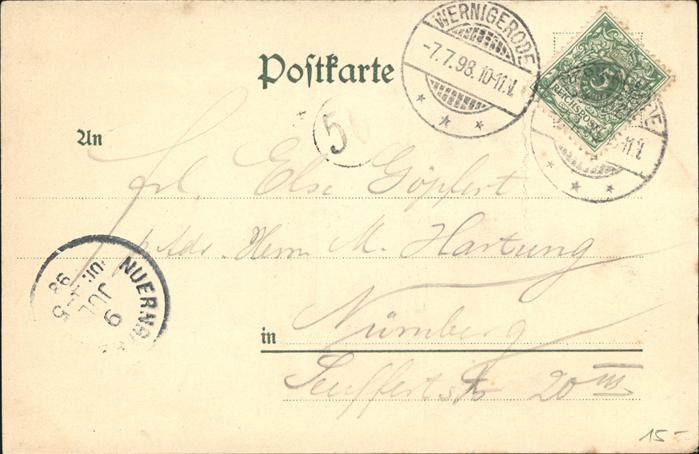 WERNIGERODE
-7.7.98.10-11.V.
* * *
Postkarte
5
REICHSPOST
11.V.
* * *
An
Frl. Else Göpfert
p. Adr. Herrn M. Hartung
NUERNB
JUL
9
98
in Nürnberg
Seuffertstr 20 III
15-